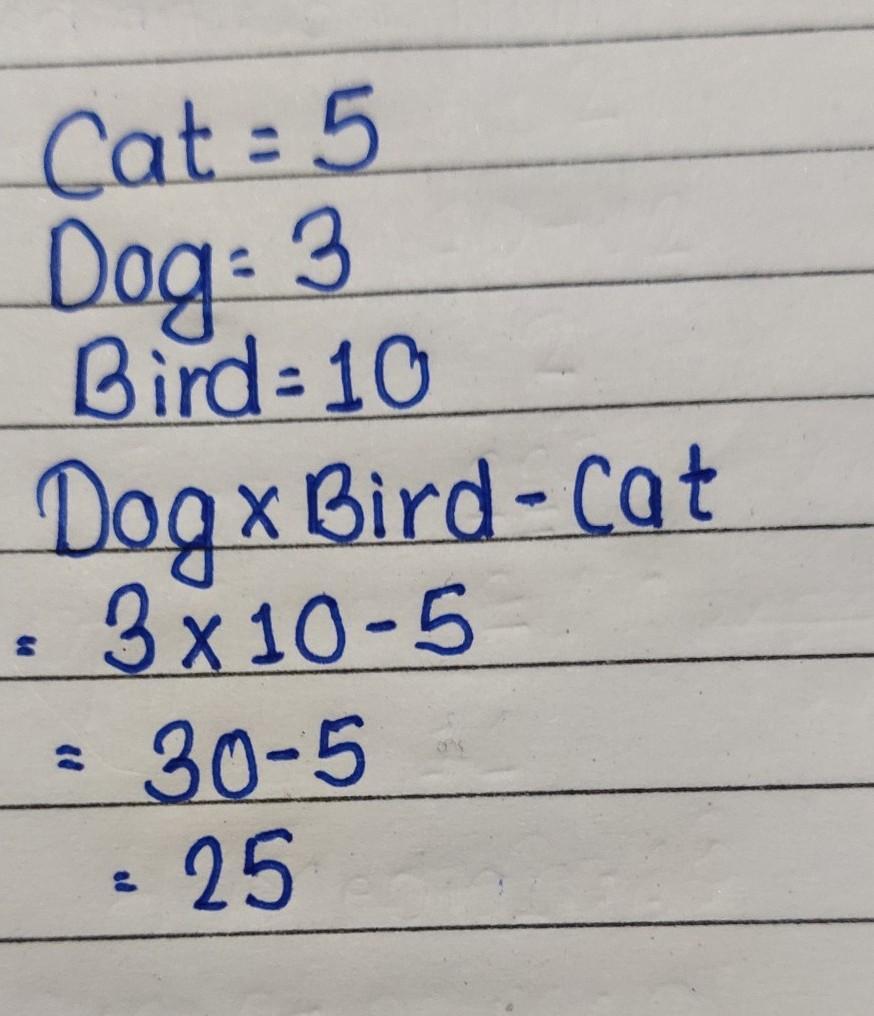 Cat = 5
Dog = 3
Bird = 10
Dog x Bird - Cat
= 3 x 10 - 5
= 30 - 5
= 25